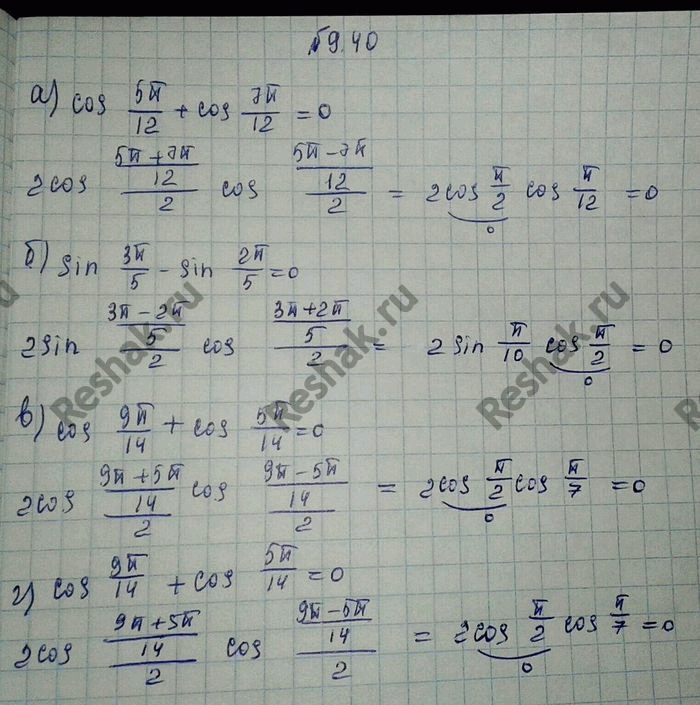 Г9.40
а) cos 5π/12 + cos 7π/12 = 0
2cos ((5π+7π)/12)/2 cos ((5π-7π)/12)/2 = 2cos π/2 cos π/12 = 0
0
б) sin 3π/5 - sin 2π/5 = 0
2sin ((3π-2π)/5)/2 cos ((3π+2π)/5)/2 = 2 sin π/10 cos π/2 = 0
0
в) cos 9π/14 + cos 5π/14 = 0
2cos ((9π+5π)/14)/2 cos ((9π-5π)/14)/2 = 2cos π/2 cos π/7 = 0
0
г) cos 9π/14 + cos 5π/14 = 0
2cos ((9π+5π)/14)/2 cos ((9π-5π)/14)/2 = 2cos π/2 cos π/7 = 0
0
Reshak.ru
Reshak.ru
Reshak.ru
Reshak.ru